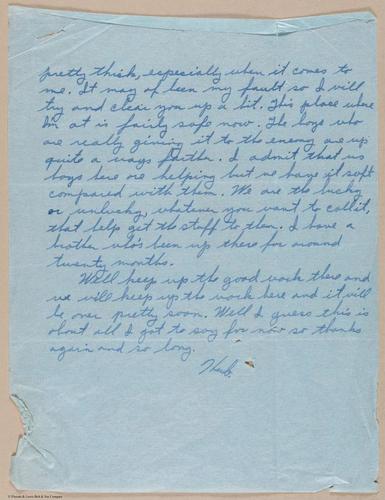 pretty thick, especially when it comes to
me. It may of been my fault so I will
try and clear you up a bit. This place where
I'm at is fairly safe now. The boys who
are really giving it to the enemy are up
quite a ways further. I admit that us
boys here are helping but we have it soft
compared with them. We are the lucky
or unlucky, whatever you want to call it,
that help get the stuff to them. I have a
brother who's been up there for around
twenty months.
Well keep up the good work there and
we will keep up the work here and it will
be over pretty soon. Well I guess this is
about all I got to say for now so thanks
again and so long.
Herb.